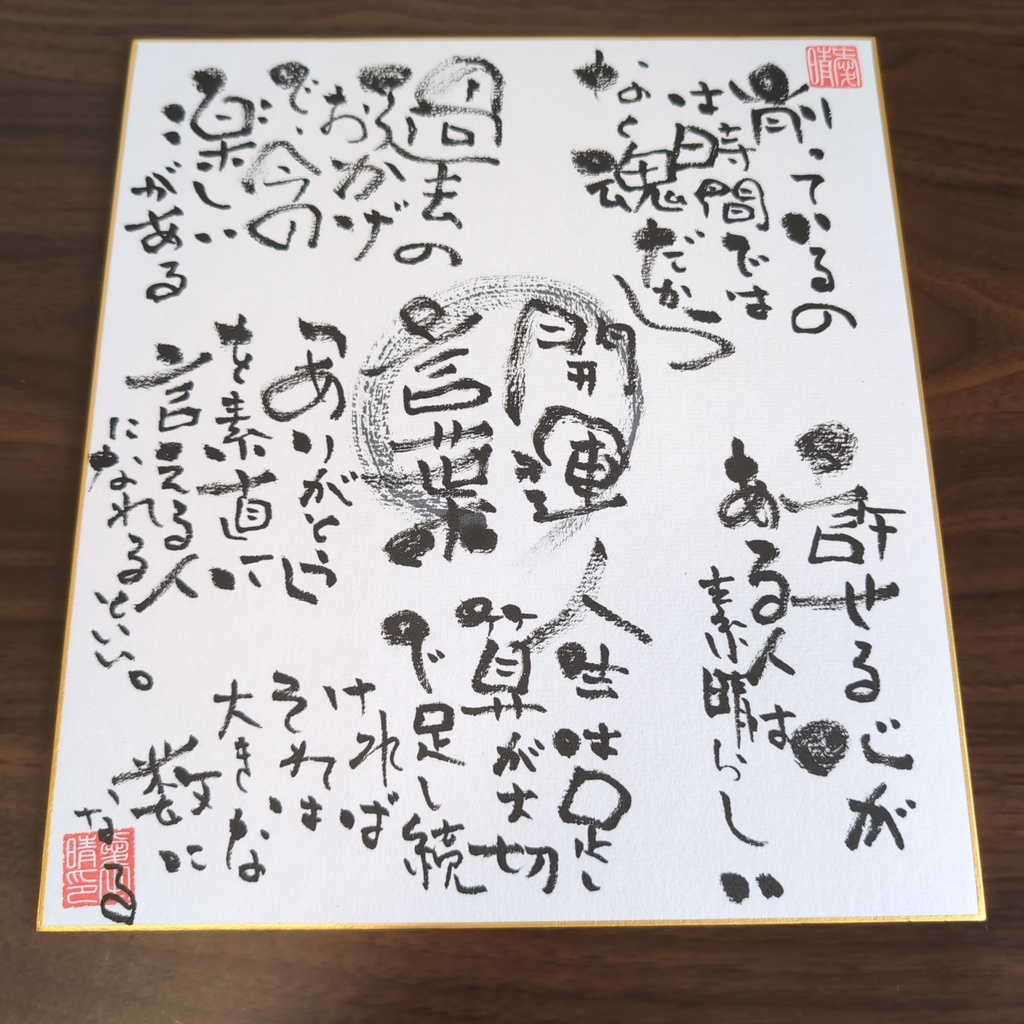 削っているの
は時間では
なく魂だから
許せる心が
ある人は
素晴らしい
開運
言葉
過去の
おかげ
で、今の
楽しい
がある
人生は足し
算が大切
で足し続
ければ
それは
大きな
数に
なる
「ありがとう」
を素直に
言える人
になれるといい。